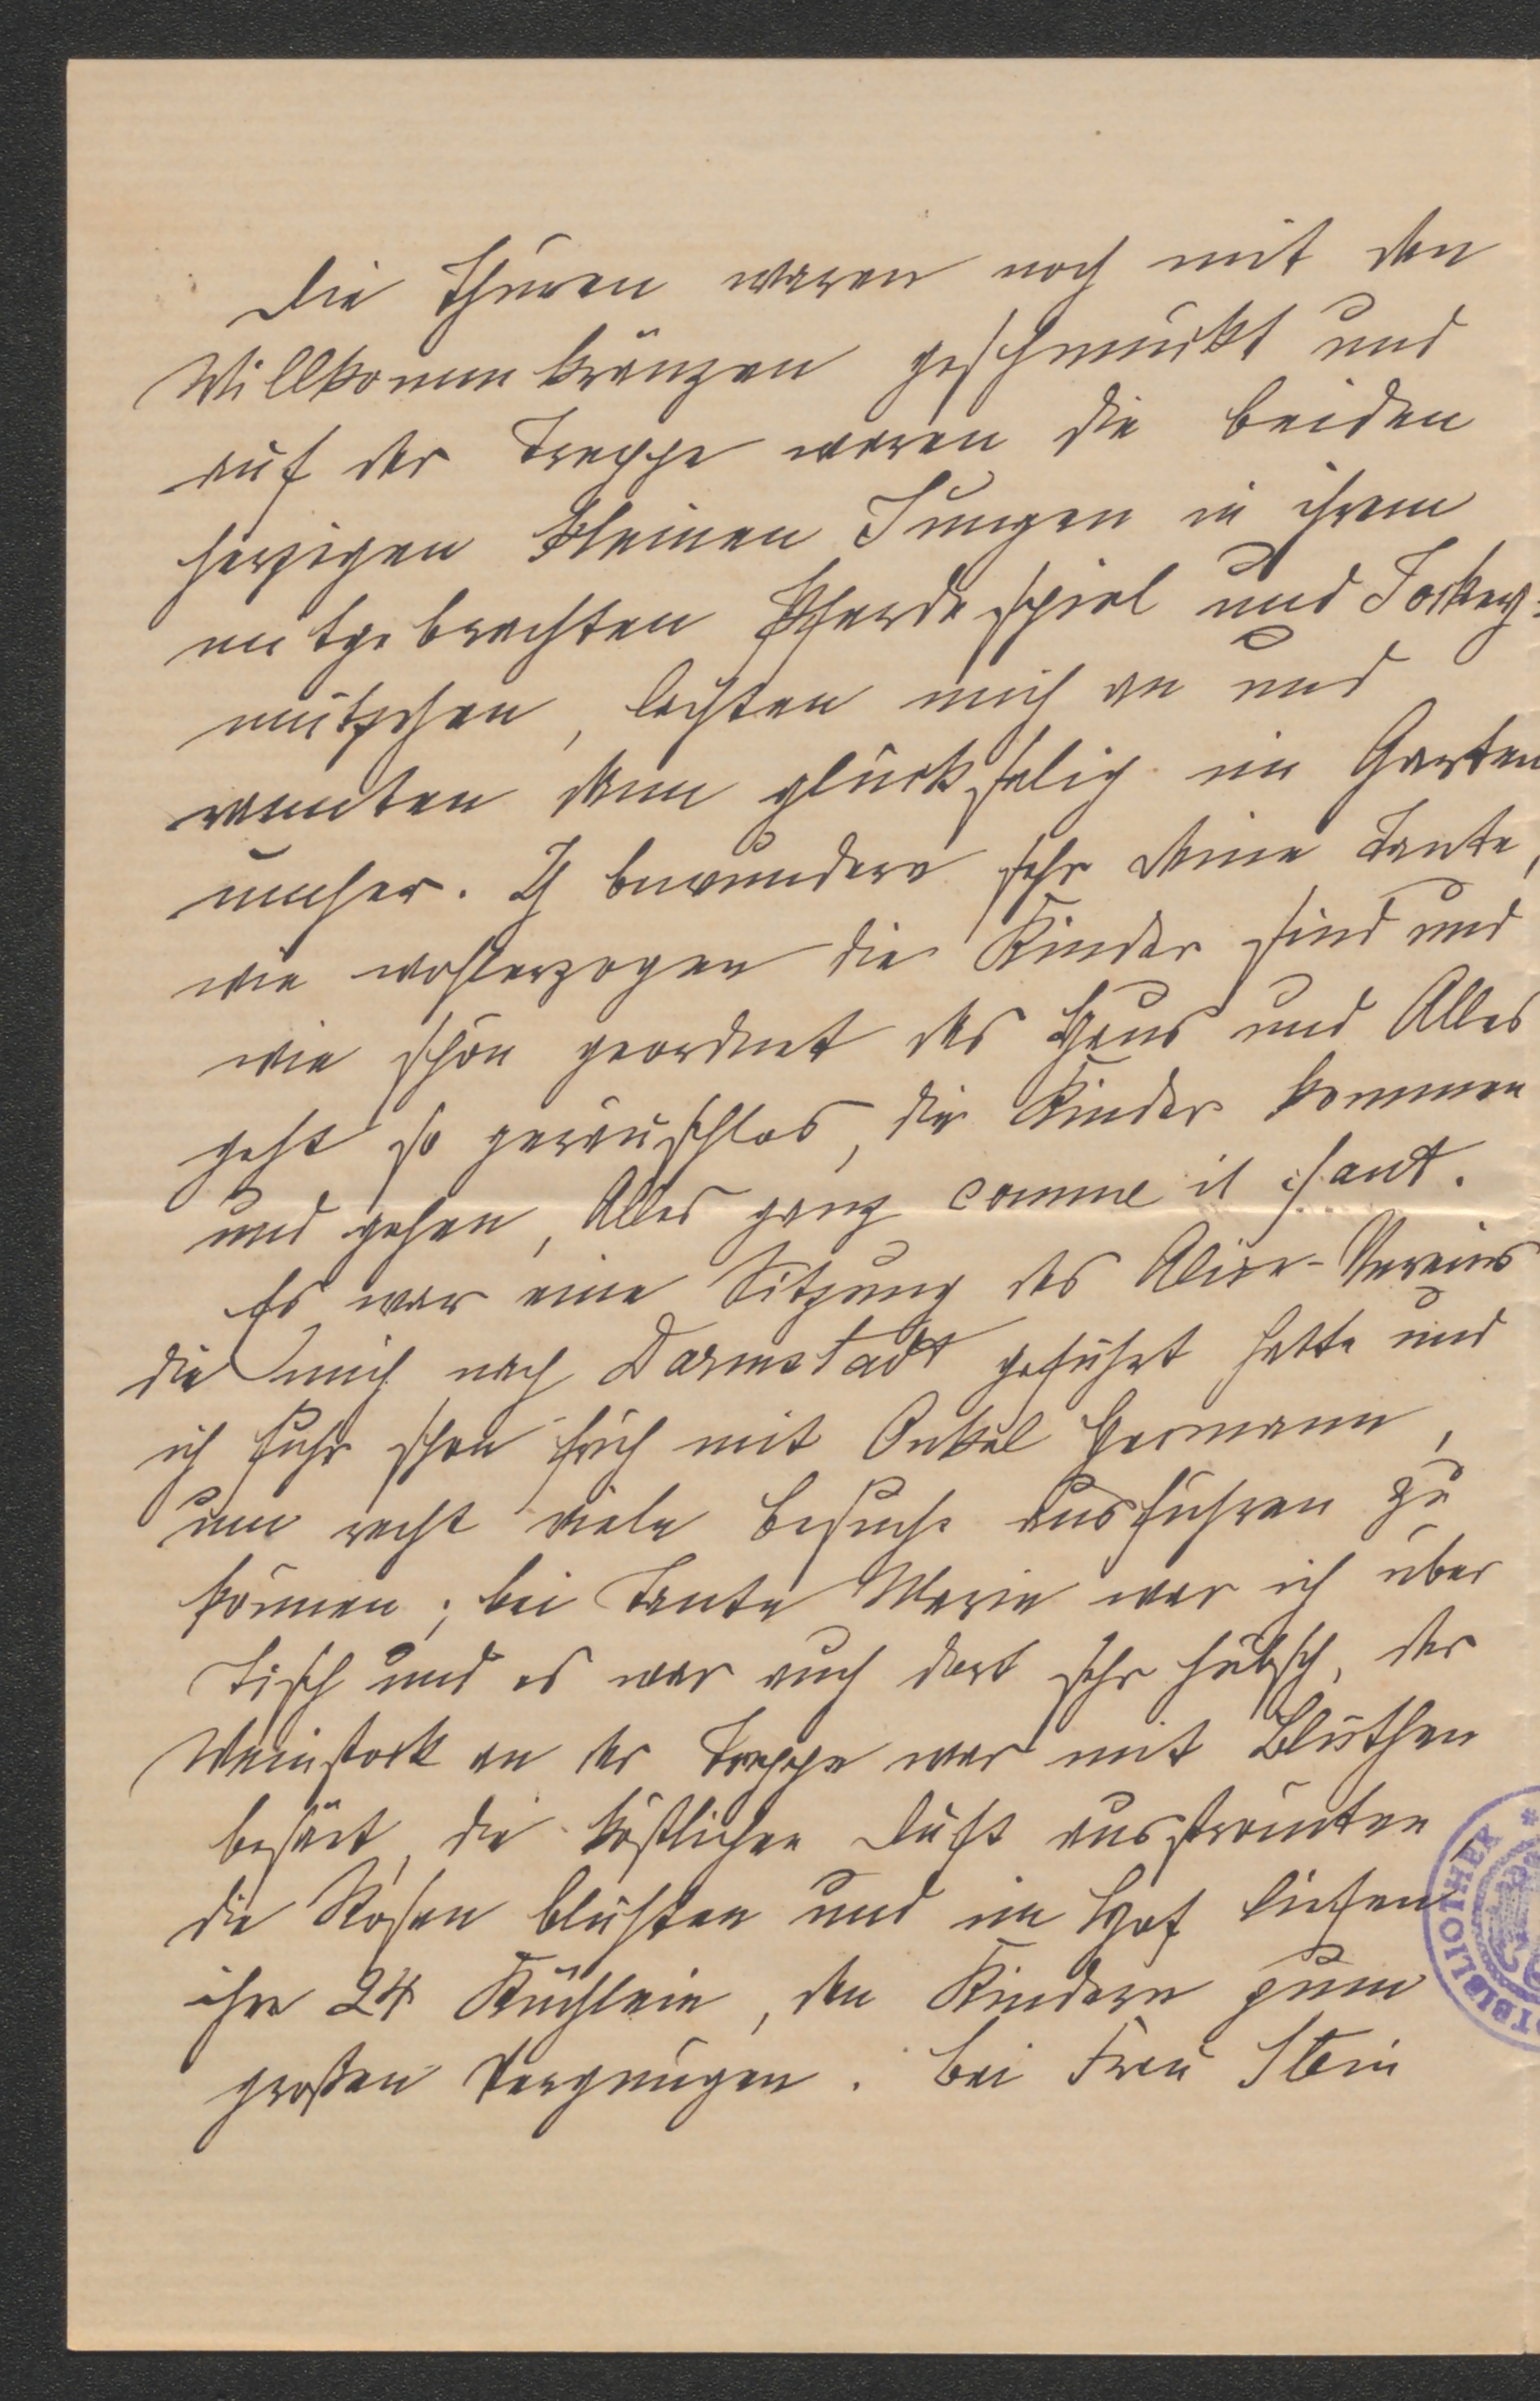 Die Thüren waren noch mit den
Willkommkränzen geschmückt und
auf der Treppe waren die beiden
herzigen kleinen Jungen in ihrem
mitgebrachten Pferdespiel und Jockey-
mützchen, lachten mich an und
rannten dann glückselig im Garten
umher. Ich bewundere sehr Deine Tante,
wie wohlerzogen die Kinder sind und
wie schön geordnet das Haus und Alles
geht so geräuschlos, die Kinder kommen
und gehen, Alles ganz comme il faut.
Es war eine Sitzung des Alice-Vereins
die mich nach Darmstadt geführt hatte und
ich fuhr schon früh mit Onkel Hermann,
um recht viele Besuche ausführen zu
können; bei Tante Marie war ich über
Tisch und es war auch dort sehr hübsch, der
Weinstock an der Treppe war mit Blüthen
besäet, die köstlichen Duft ausströmten
die Rosen blühten und im Hof liefen
ihre 24 Küchlein, den Kindern zum
großen Vergnügen. Bei Frau Stein